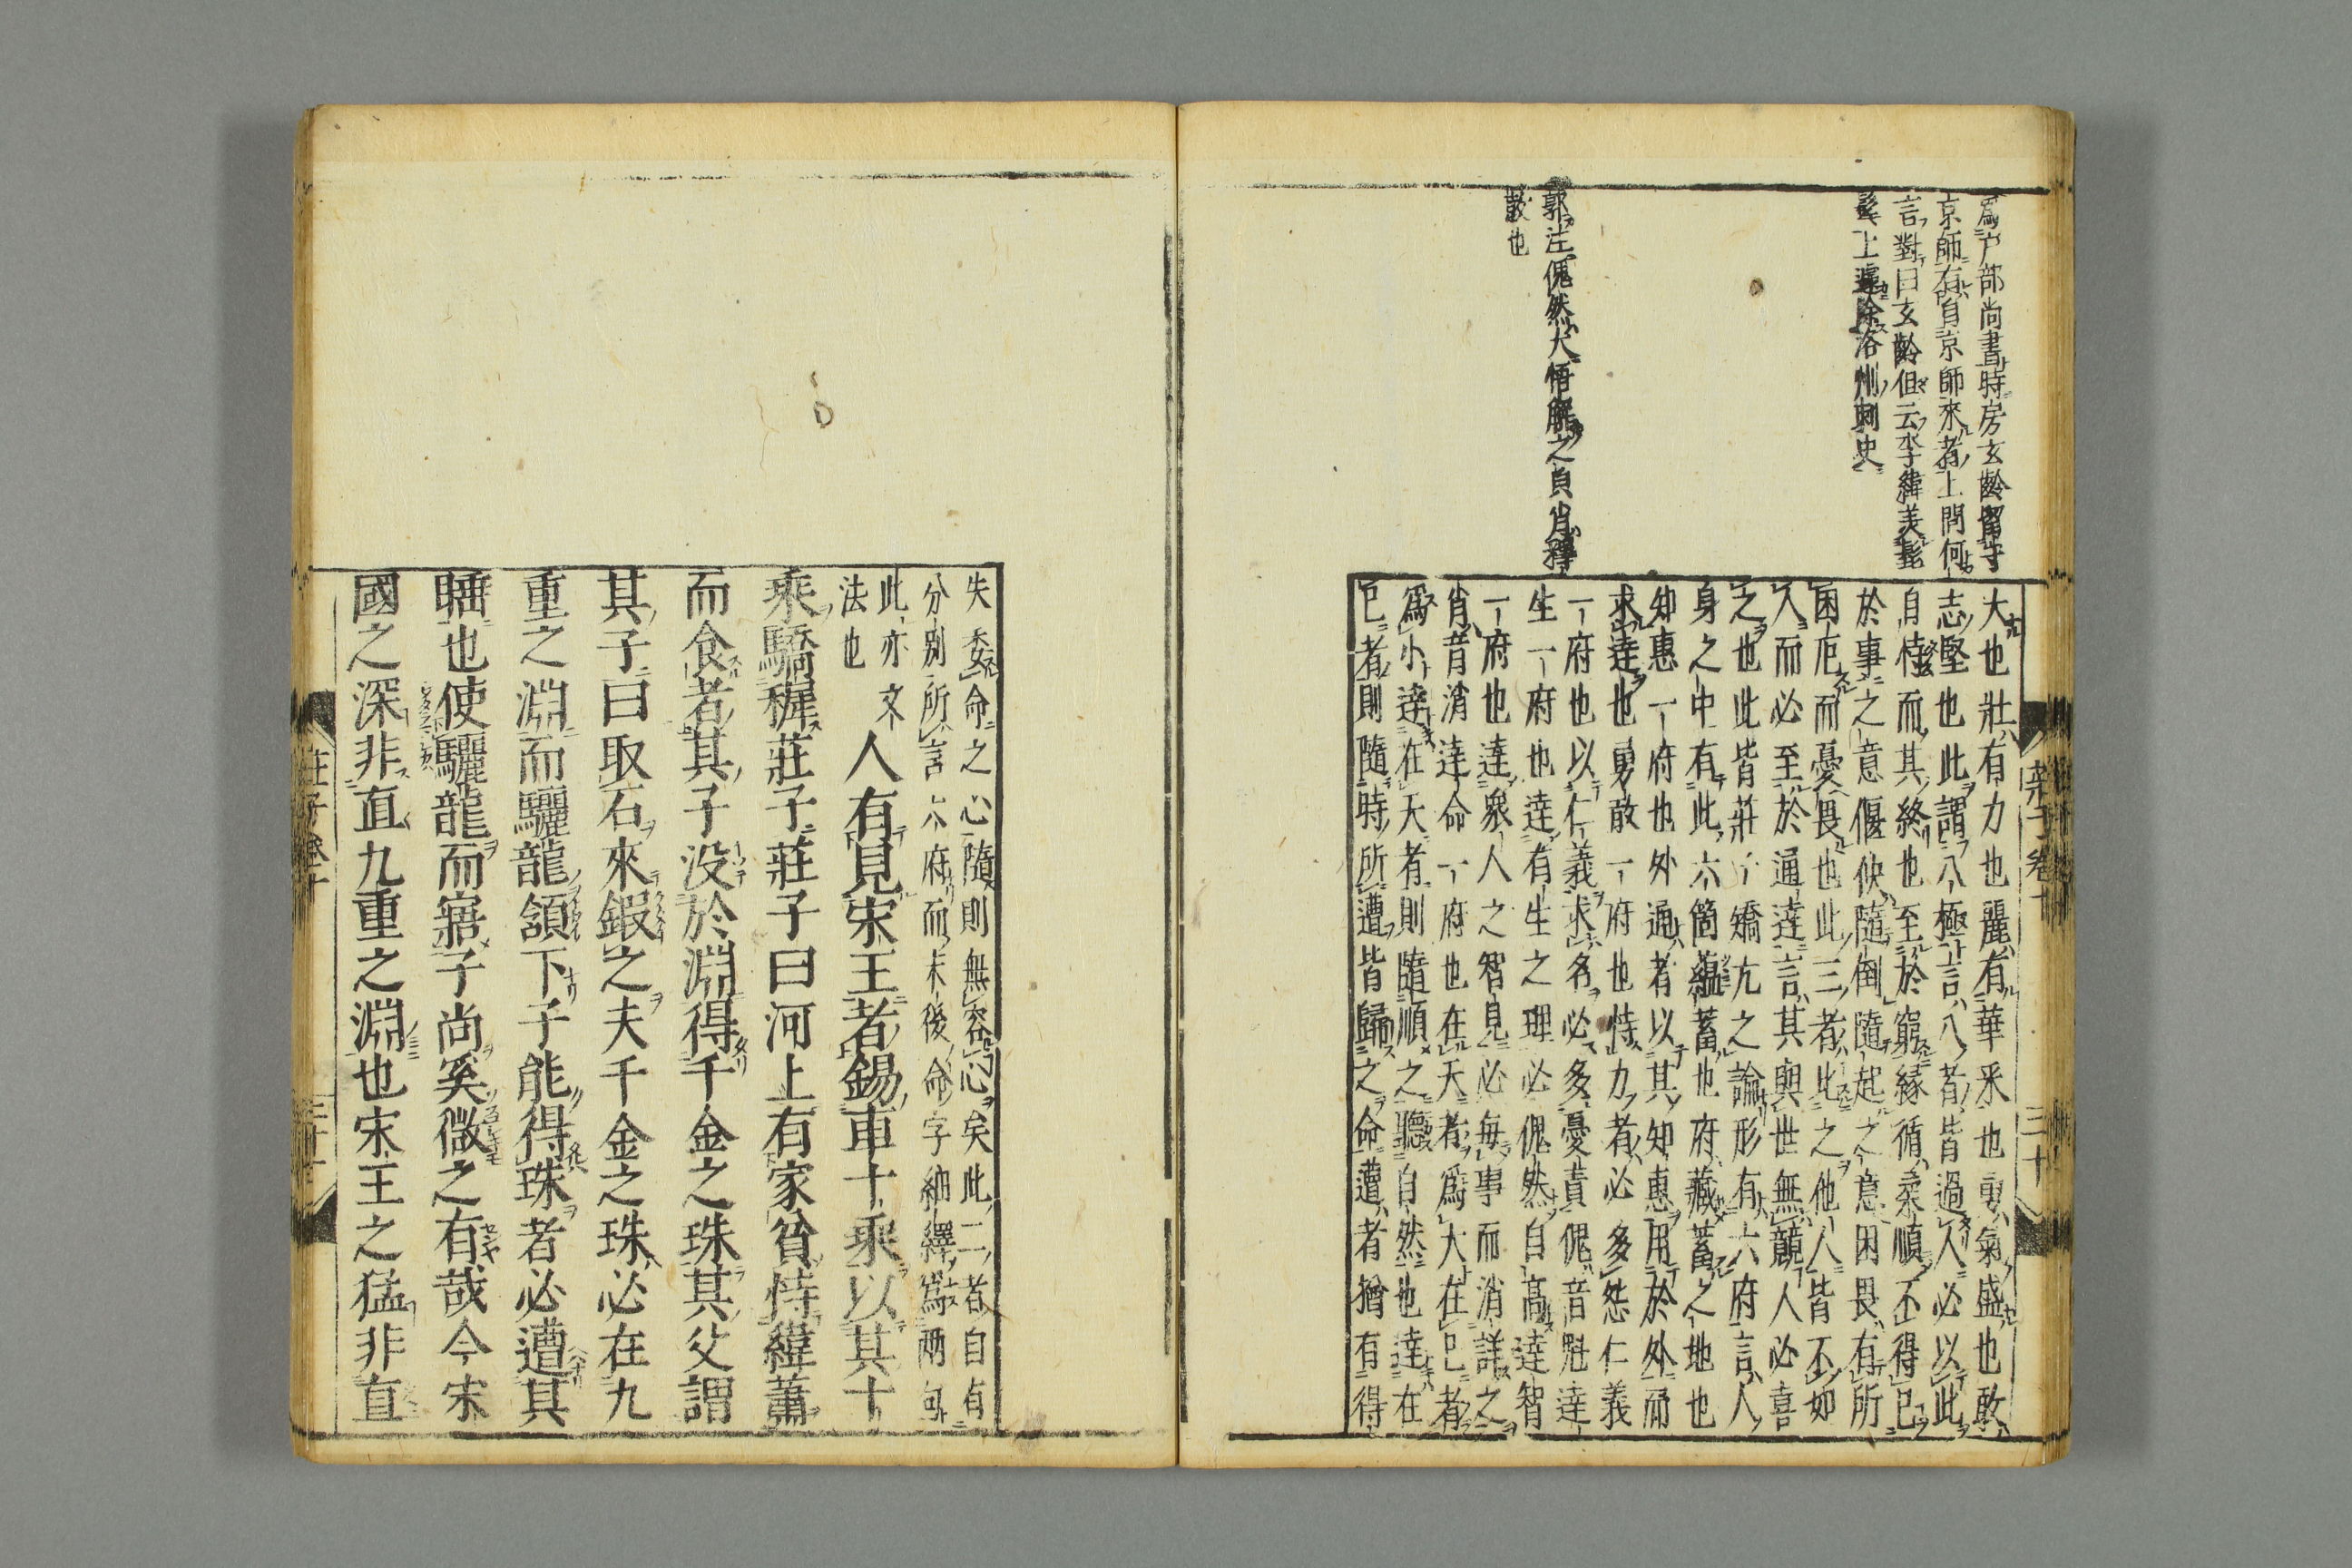 爲户部尚書時房玄齡留守
京師有自京師來者上問何
言對曰玄齡但云李緯美髭
鬂上遽除洛州刺史
郭注傀然大悟解之貞肖釋
散也
莊子卷十
三十
大也壯有力也麗有華釆也勇氣盛也敢
志堅也此謂八極言八者皆過人必以此
自恃而其終也至於窮緣循柔順不得已
於事之意偃佒隨倒隨起之意困畏有所
困厄而憂畏也此三者比之他人皆不如
人而必至於通達言其與世無競人必喜
之也此皆莊子矯亢之論形有六府言人
身之中有此六箇蘊蓄也府藏蓄之地也
知惠一府也外通者以其知惠用於外而
求達也勇敢一府也恃力者必多怨仁義
一府也以仁義求名必多憂責傀音魁達
生一府也達有生之理必傀然自高達智
一府也達衆人之智見必每事而消詳之
肖音消達命一府也在天者爲大在已者
爲小達在天者則隨順之聽自然也達在
已者則隨時所遭皆歸之命遭者猶有得
失委命之心隨則無容心矣此二者自有
分別所言六府而末後命字紬繹爲兩句
此亦文
法也
人有見宋王者錫車十乘以其十
乘驕穉莊子莊子曰河上有家貧恃緯蕭
而食者其子没於淵得千金之珠其父謂
其子曰取石來鍜之夫千金之珠必在九
重之淵而驪龍頷下子能得珠者必遭其
睡也使驪龍而寤子尚奚微之有哉今宋
國之深非直九重之淵也宋王之猛非直
莊子卷十
三十一